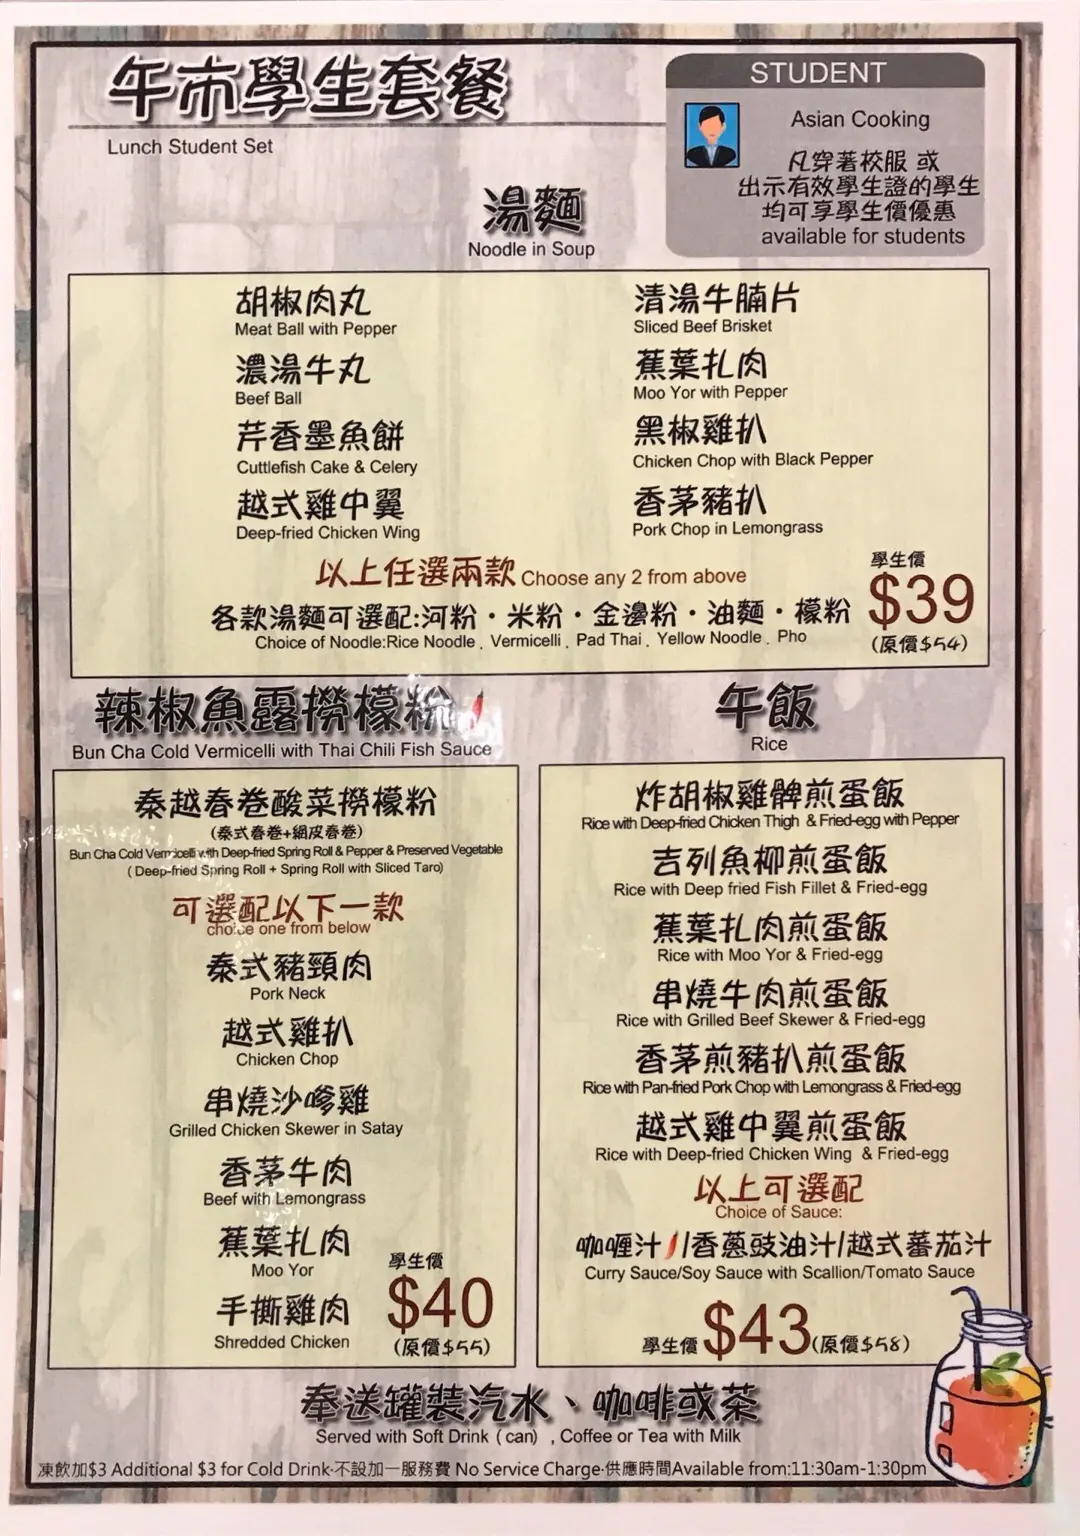 午市學生套餐
Lunch Student Set
STUDENT
Asian Cooking
凡穿著校服 或
出示有效學生證的學生
均可享學生價優惠
available for students
湯麵
Noodle in Soup
胡椒肉丸
Meat Ball with Pepper
濃湯牛丸
Beef Ball
芹香墨魚餅
Cuttlefish Cake & Celery
越式雞中翼
Deep-fried Chicken Wing
清湯牛腩片
Sliced Beef Brisket
蕉葉扎肉
Moo Yor with Pepper
黑椒雞扒
Chicken Chop with Black Pepper
香茅豬扒
Pork Chop in Lemongrass
以上任選兩款 Choose any 2 from above
各款湯麵可選配:河粉・米粉・金邊粉・油麵・檬粉
Choice of Noodle:Rice Noodle . Vermicelli . Pad Thai . Yellow Noodle . Pho
學生價
$39
(原價$54)
辣椒魚露撈檬粉
Bun Cha Cold Vermicelli with Thai Chili Fish Sauce
泰越春卷酸菜撈檬粉
(泰式春卷+網皮春卷)
Bun Cha Cold Vermicelli with Deep-fried Spring Roll & Pepper & Preserved Vegetable
( Deep-fried Spring Roll + Spring Roll with Sliced Taro)
可選配以下一款
choice one from below
泰式豬頸肉
Pork Neck
越式雞扒
Chicken Chop
串燒沙嗲雞
Grilled Chicken Skewer in Satay
香茅牛肉
Beef with Lemongrass
蕉葉扎肉
Moo Yor
手撕雞肉
Shredded Chicken
學生價
$40
(原價$55)
午飯
Rice
炸胡椒雞髀煎蛋飯
Rice with Deep-fried Chicken Thigh & Fried-egg with Pepper
吉列魚柳煎蛋飯
Rice with Deep fried Fish Fillet & Fried-egg
蕉葉扎肉煎蛋飯
Rice with Moo Yor & Fried-egg
串燒牛肉煎蛋飯
Rice with Grilled Beef Skewer & Fried-egg
香茅煎豬扒煎蛋飯
Rice with Pan-fried Pork Chop with Lemongrass & Fried-egg
越式雞中翼煎蛋飯
Rice with Deep-fried Chicken Wing & Fried-egg
以上可選配
Choice of Sauce:
咖喱汁/香蔥豉油汁/越式蕃茄汁
Curry Sauce/Soy Sauce with Scallion/Tomato Sauce
學生價 $43 (原價$58)
奉送罐裝汽水、咖啡或茶
Served with Soft Drink ( can) , Coffee or Tea with Milk
凍飲加$3 Additional $3 for Cold Drink‧不設加一服務費 No Service Charge‧供應時間Available from:11:30am-1:30pm